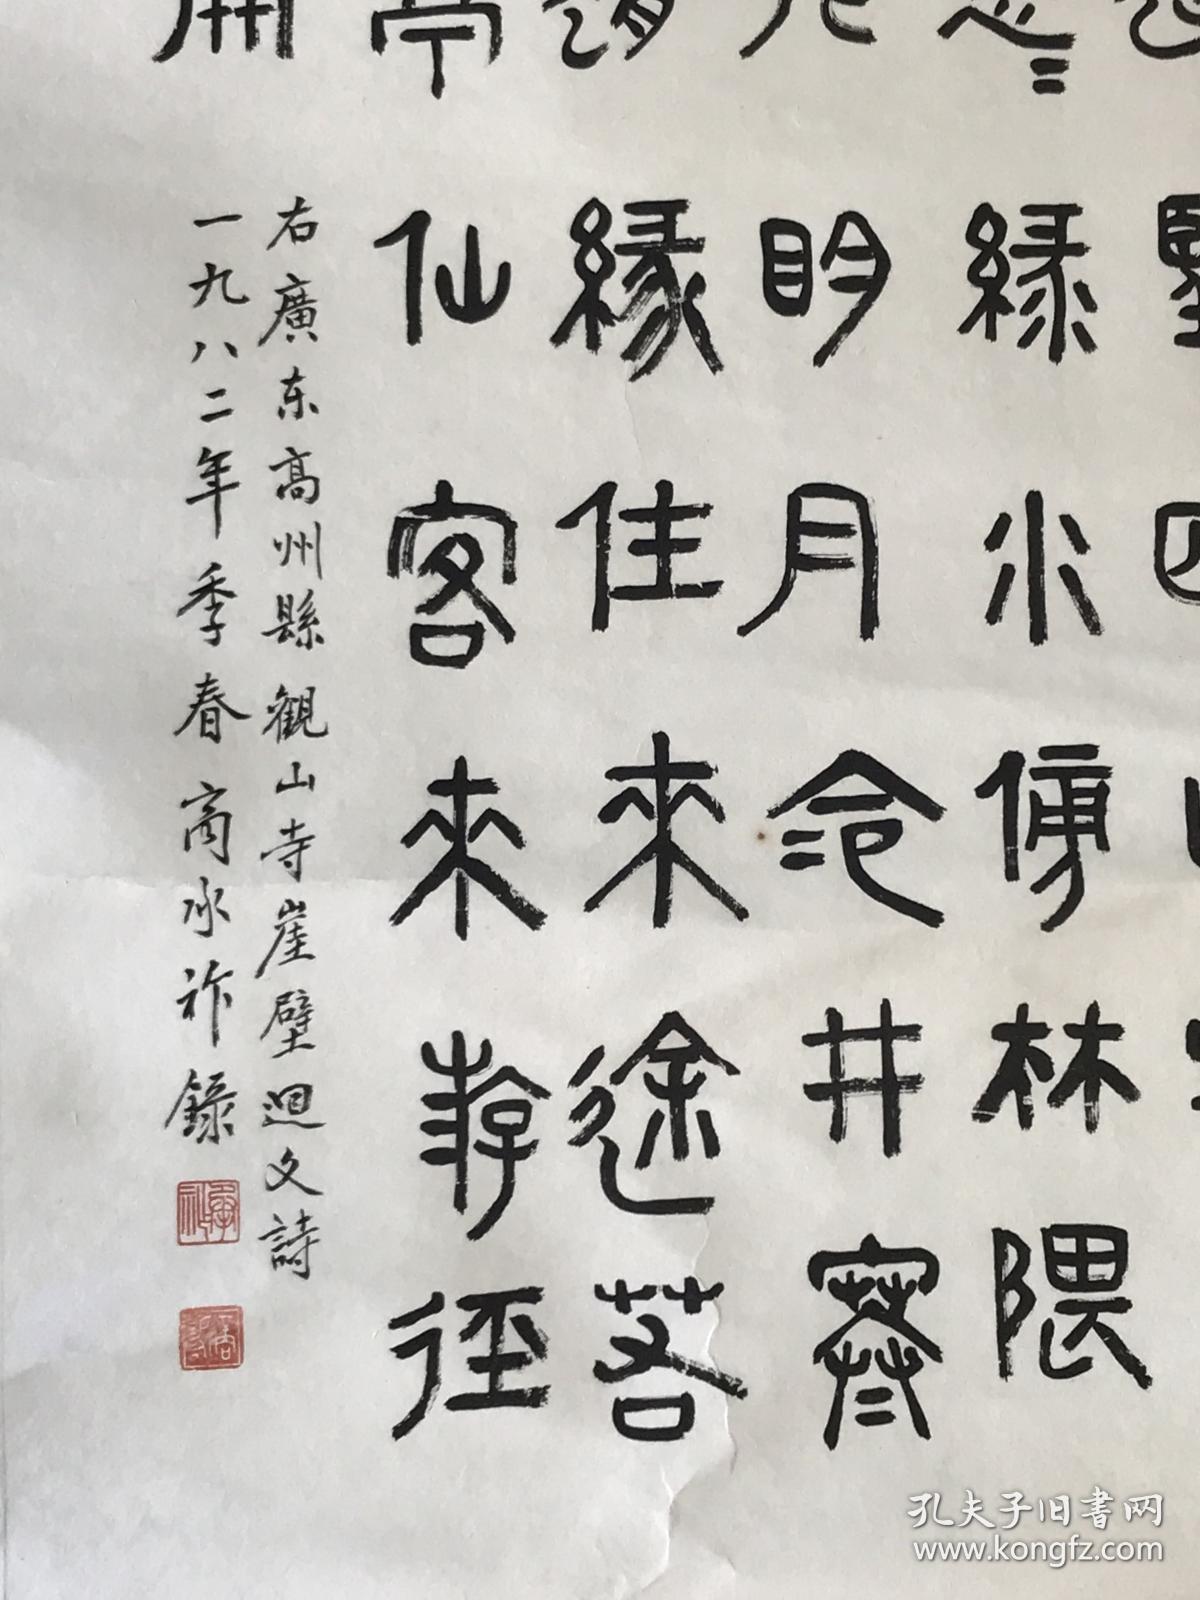 緑水傍林隈
月冷井寒
緣住來途若
亭仙客來游徑
開
右廣东高州縣觀山寺崖壁迴文詩
一九八二年季春商承祚錄
孔夫子旧書网
www.kongfz.com